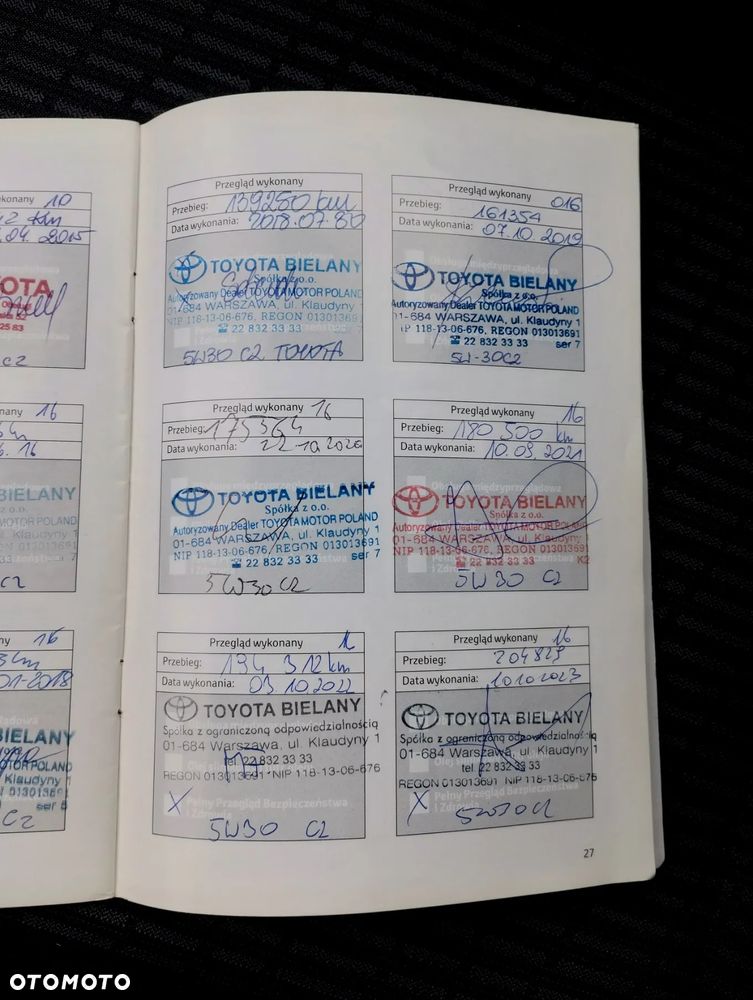 konany 10
2 km
04. 2015
OTA
25 83
C2
nany 16
6. 16
BIELANY
C2
ny 16
01-2018
BIELANY
C2
Przegląd wykonany
Przebieg: 139280 km
Data wykonania: 2018.07.30
TOYOTA BIELANY
Spółka z o.o.
Autoryzowany Dealer TOYOTA MOTOR POLAND
01-684 WARSZAWA, ul. Klaudyny 1
NIP 118-13-06-676, REGON 013013691
☎ 22 832 33 33
5W30 C2 TOYOTA
Przegląd wykonany 016
Przebieg: 161354
Data wykonania: 07.10 2019
TOYOTA BIELANY
Spółka z o.o.
Autoryzowany Dealer TOYOTA MOTOR POLAND
01-684 WARSZAWA, ul. Klaudyny 1
NIP 118-13-06-676, REGON 013013691
☎ 22 832 33 33 ser 7
5W-30C2
Przegląd wykonany 16
Przebieg: 175564
Data wykonania: 22.10 2020
TOYOTA BIELANY
Spółka z o.o.
Autoryzowany Dealer TOYOTA MOTOR POLAND
01-684 WARSZAWA, ul. Klaudyny 1
NIP 118-13-06-676, REGON 013013691
☎ 22 832 33 33 ser 7
5W30C2
Przegląd wykonany 16
Przebieg: 180 500 km
Data wykonania: 10.09.2021
TOYOTA BIELANY
Spółka z o.o.
Autoryzowany Dealer TOYOTA MOTOR POLAND
01-684 WARSZAWA, ul. Klaudyny 1
NIP 118-13-06-676, REGON 013013691
☎ 22 832 33 33 K2
5W30 C2
Przegląd wykonany
Przebieg: 194 312 km
Data wykonania: 03 10.2022
TOYOTA BIELANY
Spółka z ograniczoną odpowiedzialnością
01-684 Warszawa, ul. Klaudyny 1
tel. 22 832 33 33
REGON 013013691 NIP 118-13-06-676
X Pełny Przegląd Bezpieczeństwa
i Zdrowia
5W30 C2
Przegląd wykonany 16
Przebieg: 204829
Data wykonania: 10 10 2023
TOYOTA BIELANY
Spółka z ograniczoną odpowiedzialnością
01-684 Warszawa, ul. Klaudyny 1
tel. 22 832 33 33
REGON 013013691 NIP 118-13-06-676
X Pełny Przegląd Bezpieczeństwa
i Zdrowia
5W30C2
27
OTOMOTO